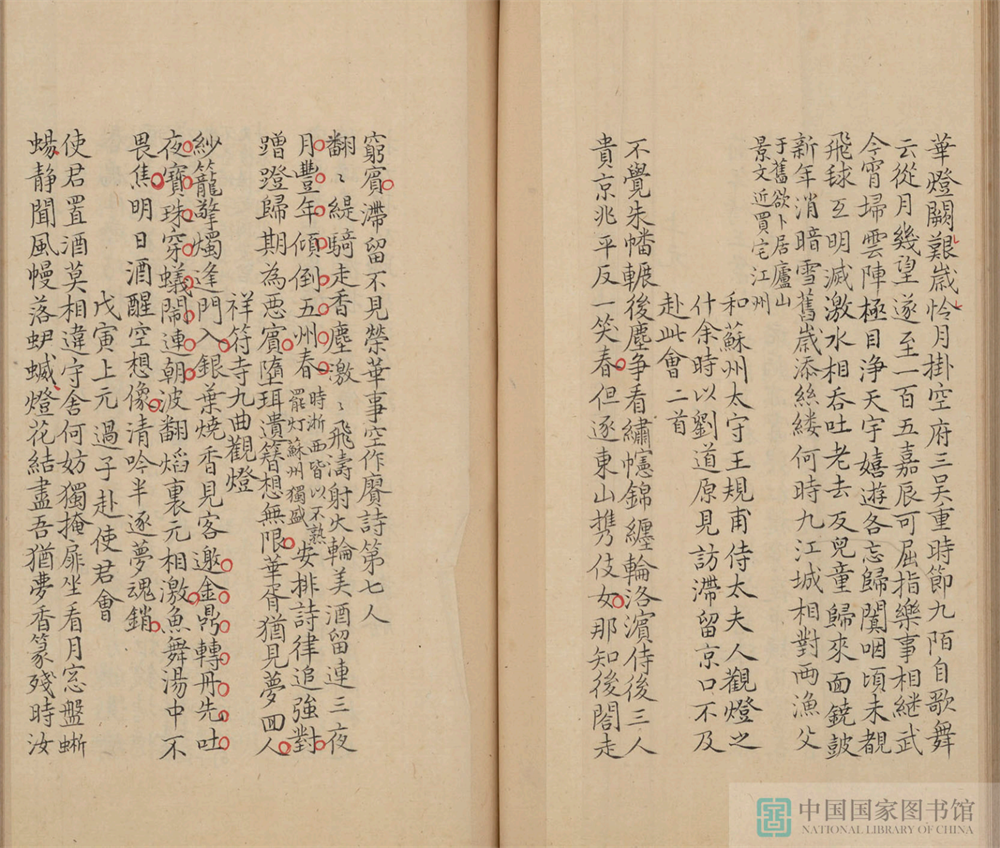 華燈闕艱歲怜月掛空府三吴重時節九陌自歌舞
云從月幾望遂至一百五嘉辰可屈指樂事相継武
今宵埽雲陣極目淨天宇嬉遊各忘歸闐咽頃未覩
飛毬互明滅激水相吞吐老去反兒童歸來面鐃鼓
新年消暗雪舊歲添絲縷何時九江城相對两漁父
于舊欲卜居廬山
景文近買宅江州
和蘇州太守王規甫侍太夫人觀燈之
什余時以劉道原見訪滯留京口不及
赴此會二首
不覺朱轓輾後塵爭看繡幰錦纏輪洛濱侍後三人
貴京兆平反一笑春但逐東山携伎女那知後閤走
窮賓滯留不見榮華事空作賡詩第七人
翻〻緹騎走香塵激〻飛濤射火輪美酒留連三夜
月豐年傾倒五州春時浙西皆以不熟罷灯蘇州獨盛安排詩律追強對
蹭蹬歸期為惡賓墮珥遺簪想無限華胥猶見夢回人
祥符寺九曲觀燈
紗籠擎燭逢門入銀葉燒香見客邀金鼎轉丹先吐
夜寶珠穿蟻鬧連朝波翻焰裏元相激魚舞湯中不
畏焦明日酒醒空想像清吟半逐夢魂銷
戊寅上元過子赴使君會
使君置酒莫相違守舍何妨獨掩扉坐看月窓盤蜥
蜴静聞風幔落蛜蝛燈花結盡吾猶夢香篆殘時汝
中国国家图书馆
NATIONAL LIBRARY OF CHINA